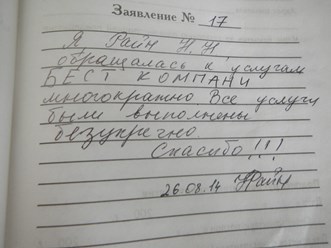 Заявление № 17
Я Райн Н.Н
обращалась к услугам
БЕСТ КОМПАНИ
многократно Все услуги
были выполнены
безукрично
Спасибо!!!
26.08.14 НРайн